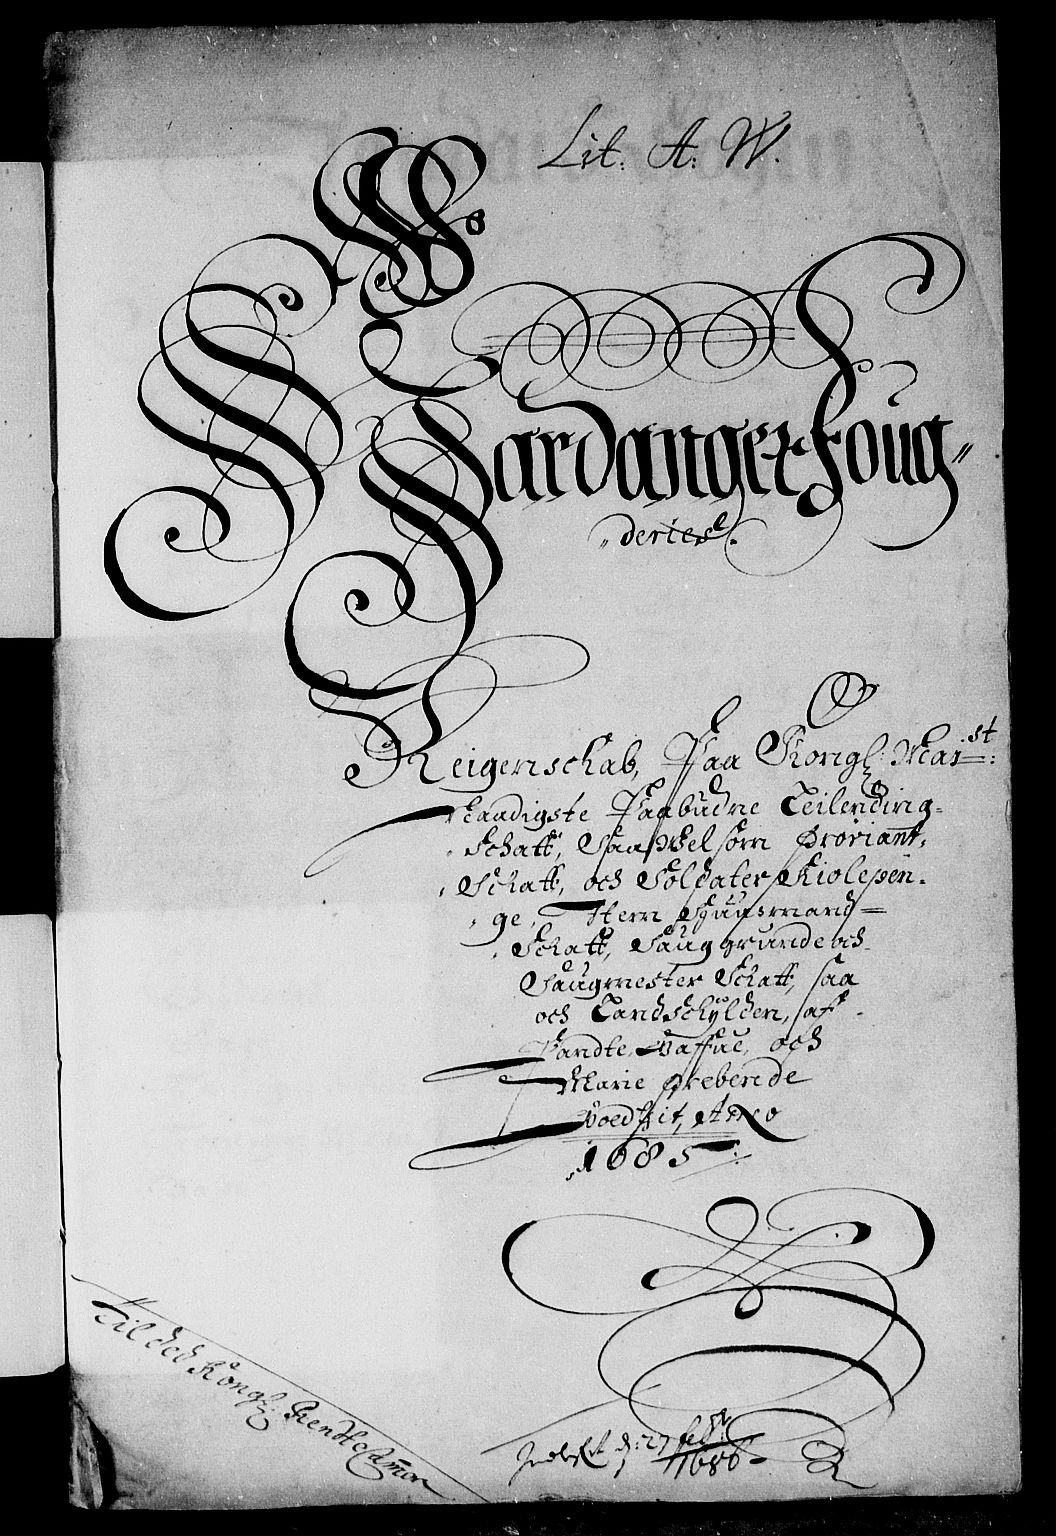 Lit: A: W.
No
Hardanger Foug-
deries.
Reigenschab, Paa Kongl: May:st
Naadigste Paabudne Leilending-
Schatt, Saa Vel som Proviant,
Schatt, och Soldater Kiolepen-
ge, Item Huusmand-
Schatt, Saug grunde och
Saugmester Schatt, saa
och Landschylden, af
Vandte, och
Marie Prebende
Godtzit, Anno
1685
Til ded Kongl: Rendte Camer
Indlefrt d: 27 feb:
1686